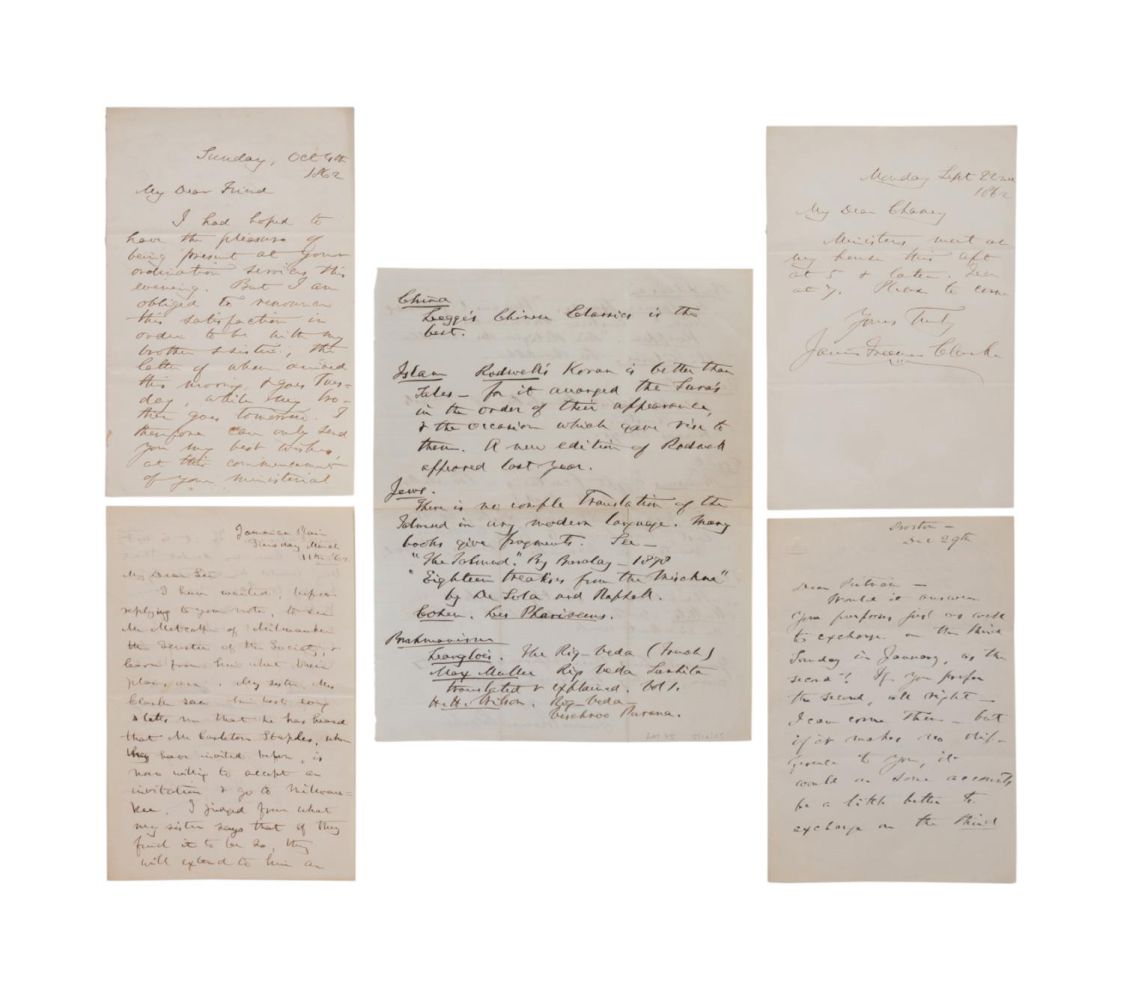 Sunday, Oct
1862
My Dear Friend
I had hoped to
have the pleasure of
being present at your
ordination services this
evening. But I am
obliged to renounce
this satisfaction in
order to be with my
brother & sister, the
latter of whom arrived
this morning & goes Tues-
day, while my bro-
ther goes tomorrow. I
therefore can only send
you my best wishes,
at this commencement
of your ministerial
Jamaica Plain
March
My Dear Sir
I have waited, before
replying to your note, to see
Mr Metcalf of Milwaukee
the of the Society, &
learn from him what their
plans are. My sister, Mrs
Clarke saw him last evng
& tells me that he has heard
that Mr Carlton Staples, whom
they have invited before, is
now willing to accept an
invitation & go to Milwau-
kee. I judged from what
my sister says that if they
find it to be so, they
will extend to him an
China
Legge's Chinese Classics is the
best.
Islam Rodwell's Koran is better than
Sales - for it arranged the Sura's
in the order of their appearance,
& the occasion which gave rise to
them. A new edition of Rodwell
appeared last year.
Jews.
There is no Translation of the
Talmud in any modern language. Many
books give fragments. See -
"The Talmud." By Barclay - 1878
"Eighteen treatises from the Mischna"
by De Sola and Raphall.
Cohen. Les Pharisiens.
Brahmanism
Langlois. The Rig-Veda (French)
Max Muller Rig Veda Sanhita
translated & explained. Vol 1.
H. H. Wilson. Rig-Veda-
Vischnoo Purana.
Monday Sept 22
1862
My Dear Chaney
Ministers meet at
my house this aft
at 5 & later. Tea
at 7. Please to come
Yours Truly
James Freeman Clarke
Boston -
Dec 29th
Dear -
Would it answer
your purposes just as well
to exchange on the third
Sunday in January, as the
second? If you prefer
the second, all right -
I can come then - but
if it makes no dif-
ference to you, it
would on some accounts
be a little better to
exchange on the third